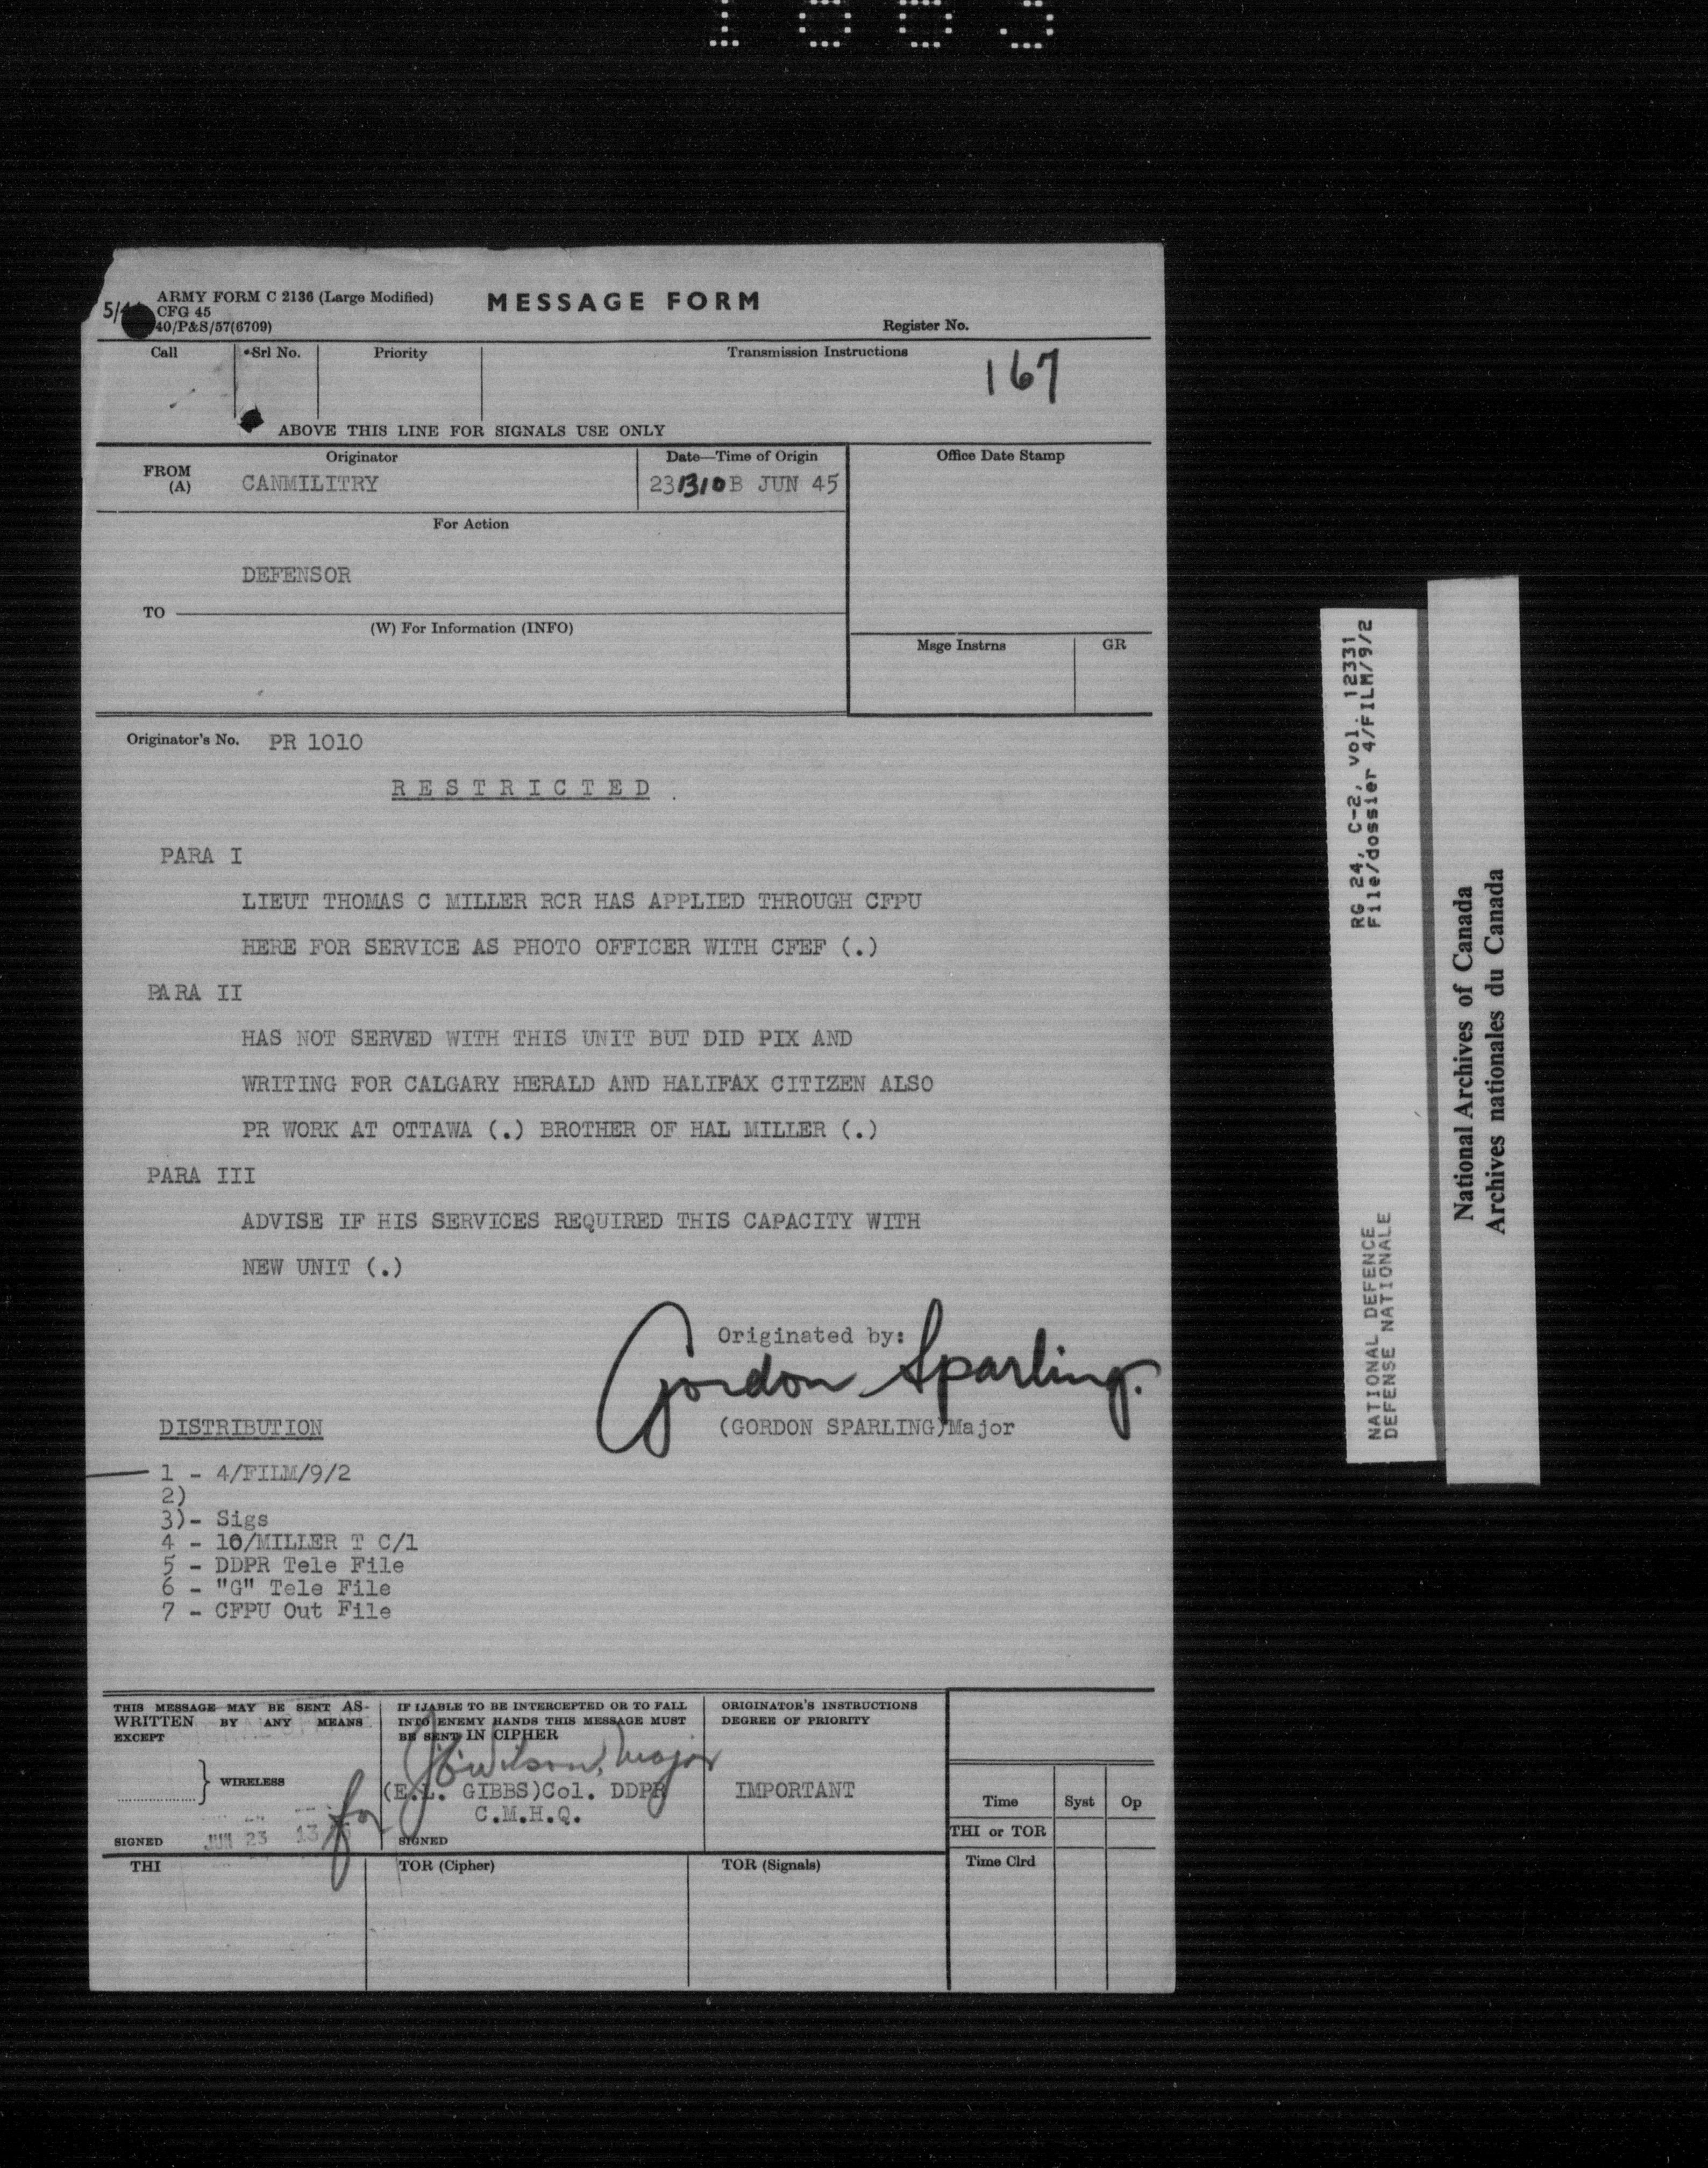 ARMY FORM C 2136 (Large Modified)
CFG 45
40/P&S/57(6709)
5/
MESSAGE FORM
Register No.
Call
Srl No.
Priority
Transmission Instructions
167
ABOVE THIS LINE FOR SIGNALS USE ONLY
FROM
(A)
Originator
CANMILITRY
Date—Time of Origin
231310B JUN 45
Office Date Stamp
For Action
DEFENSOR
TO
(W) For Information (INFO)
Msge Instrns
GR
Originator's No. PR 1010
RESTRICTED
PARA I
LIEUT THOMAS C MILLER RCR HAS APPLIED THROUGH CFPU
HERE FOR SERVICE AS PHOTO OFFICER WITH CFEF (.)
PARA II
HAS NOT SERVED WITH THIS UNIT BUT DID PIX AND
WRITING FOR CALGARY HERALD AND HALIFAX CITIZEN ALSO
PR WORK AT OTTAWA (.) BROTHER OF HAL MILLER (.)
PARA III
ADVISE IF HIS SERVICES REQUIRED THIS CAPACITY WITH
NEW UNIT (.)
Originated by:
Gordon Sparling.
(GORDON SPARLING)Major
DISTRIBUTION
1 - 4/FILM/9/2
2)
3)- Sigs
4 - 10/MILLER T C/1
5 - DDPR Tele File
6 - "G" Tele File
7 - CFPU Out File
THIS MESSAGE MAY BE SENT AS
WRITTEN BY ANY MEANS
EXCEPT
WIRELESS
SIGNED
JUN 23 13
IF LIABLE TO BE INTERCEPTED OR TO FALL
INTO ENEMY HANDS THIS MESSAGE MUST
BE SENT IN CIPHER
Wilson, Major
for
(E.L. GIBBS)Col. DDPR
C.M.H.Q.
SIGNED
ORIGINATOR'S INSTRUCTIONS
DEGREE OF PRIORITY
IMPORTANT
Time
Syst
Op
THI or TOR
Time Clrd
THI
TOR (Cipher)
TOR (Signals)
NATIONAL DEFENCE
DEFENSE NATIONALE
RG 24, C-2, vol. 12331
File/dossier 4/FILM/9/2
National Archives of Canada
Archives nationales du Canada